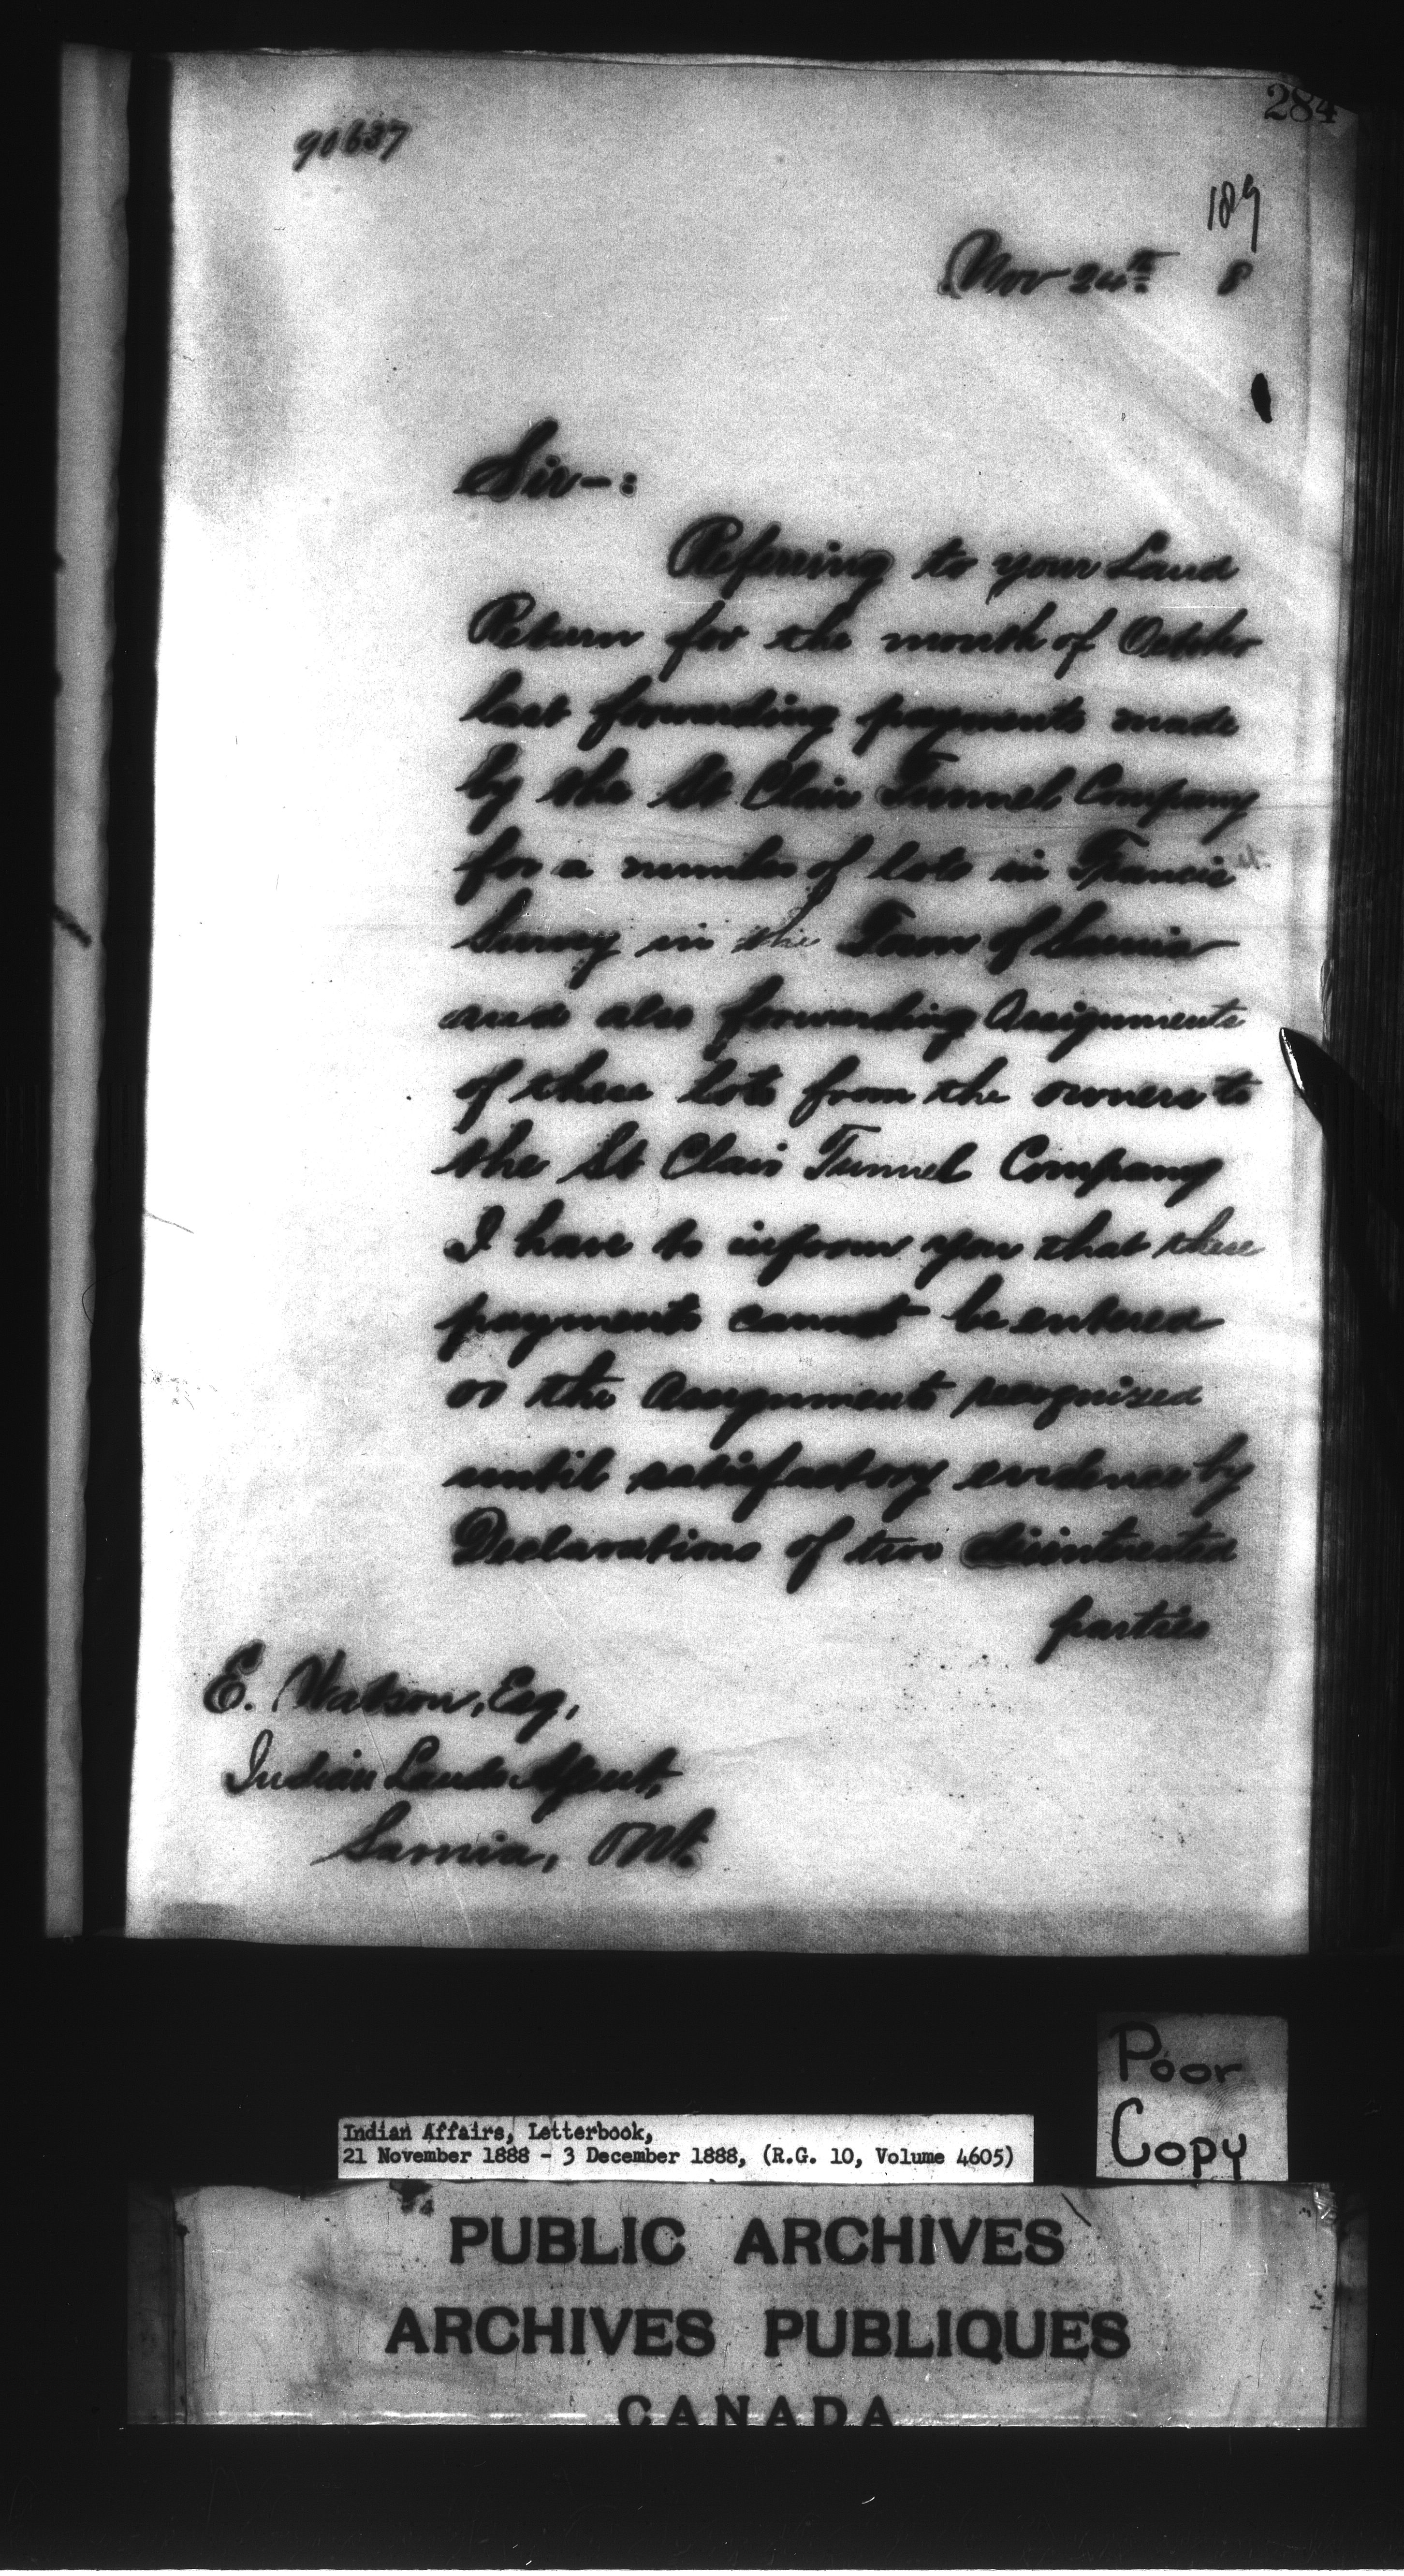 284
90637
189
Nov 24th 8
Sir-:
Referring to your Land
Return for the month of October
last forwarding payments made
by the St Clair Tunnel Company
for a number of lots in Francis
Survey in the Town of Sarnia
and also forwarding Assignments
of these lots from the owners to
the St Clair Tunnel Company
I have to inform you that these
payments cannot be entered
or the Assignments recognized
until satisfactory evidence by
Declarations of two disinterested
parties
E. Watson, Esq,
Indian Lands Agent,
Sarnia, Ont.
Poor
Copy
Indian Affairs, Letterbook,
21 November 1888 - 3 December 1888, (R.G. 10, Volume 4605)
PUBLIC ARCHIVES
ARCHIVES PUBLIQUES
CANADA